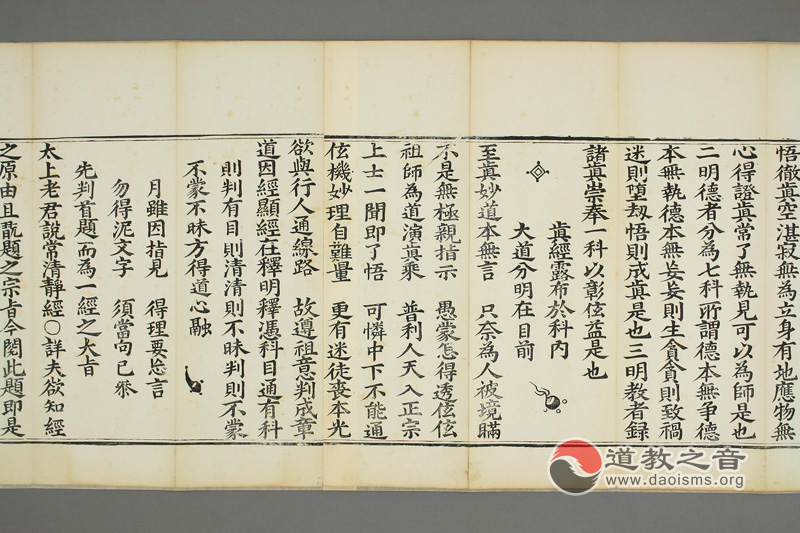 悟徹真空湛寂無為立身有地應物無
心得證真常了無執見可以為師是也
二明德者分為七科所謂德本無爭德
本無執德本無妄妄則生貪貪則致禍
迷則墮刼悟則成真是也三明教者録
諸真崇奉一科以彰伭益是也
真經露布於科內
大道分明在目前
至真妙道本無言 只奈為人被境瞞
不是無極親指示 愚蒙怎得透伭伭
祖師為道演真乘 普利人天入正宗
上士一聞即了悟 可憐中下不能通
伭機妙理自難量 更有迷徒喪本光
欲與行人通線路 故遵祖意判成章
道因經顯經在釋明釋憑科目通有科
則判有目則清清則不昧判則不蒙
不蒙不昧方得道心融
月雖因指見 得理要忘言
勿得泥文字 須當向己參
先判首題而為一經之大旨
太上老君說常清靜經○詳夫欲知經
之原由且翫題之宗旨今閱此題即是
道教之音
www.daoisms.org